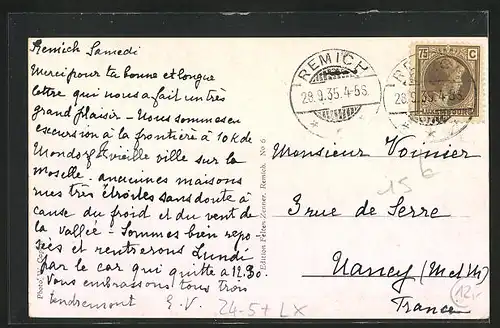 Remich Samedi
Merci pour ta bonne et longue
lettre qui nous a fait un très
grand plaisir - Nous sommes en
excursion à la frontière à 10 k de
Mondorf vieille ville sur la
Moselle - anciennes maisons
rues très étroites sans doute à
cause du froid et du vent de
la vallée - Sommes bien repo
sés et rentrerons Lundi
par le car qui quitte à 12.30.
Vous embrassons tous trois
tendrement E.V.
24-5+ LX
Edition Felten-Zenner, Remich. No 6
REMICH
28.9.35.4-5S
REMICH
28.9.35.4-5S
75 C
Monsieur Voinier
15 b
3 rue de Serre
Nancy (M et M)
France
12,-